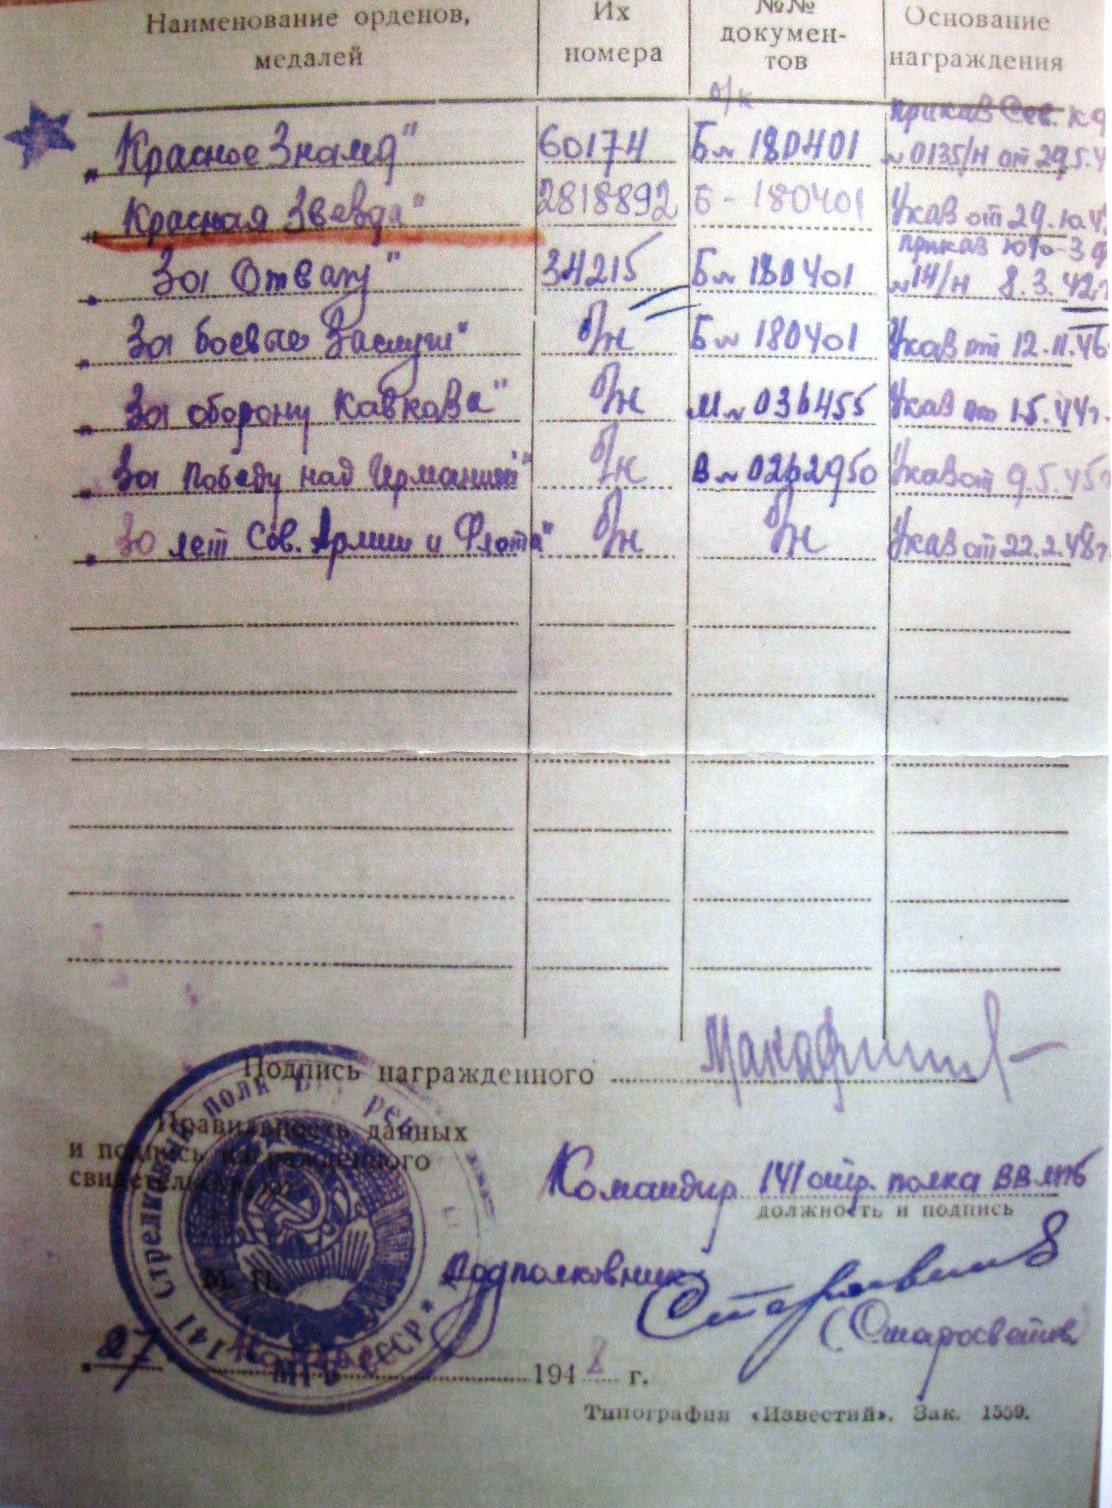 Наименование орденов, медалей
Их номера
№№ документов
Основание награждения
б/н
приказ Сев. Кф
„Красное Знамя" 60174 Б№ 180401 №0135/н от 29.5.4
„Красная Звезда" 2818892 Б - 180401 Указ от 29.10.4
приказ
„За Отвагу" 34215 Б№ 180401 №14/н 8.3.42г
„За боевые Заслуги" б/н Б№ 180401 Указ от 12.11.46
„За оборону Кавказа" б/н М№ 036455 Указ от 1.5.44г.
„За Победу над Германией" б/н В№ 0262950 Указ от 9.5.45г
„30 лет Сов. Армии и Флота" б/н б/н Указ от 22.2.48г.
Подпись награжденного
Правильность данных
и подпись награжденного
свидетельствую:
Командир 141 стр. полка ВВ МГБ
должность и подпись
М. П.
Подполковник
(Старосветов)
141 Стрелковый полк МГБ СССР
„27" 1948 г.
Типография «Известий». Зак. 1559.